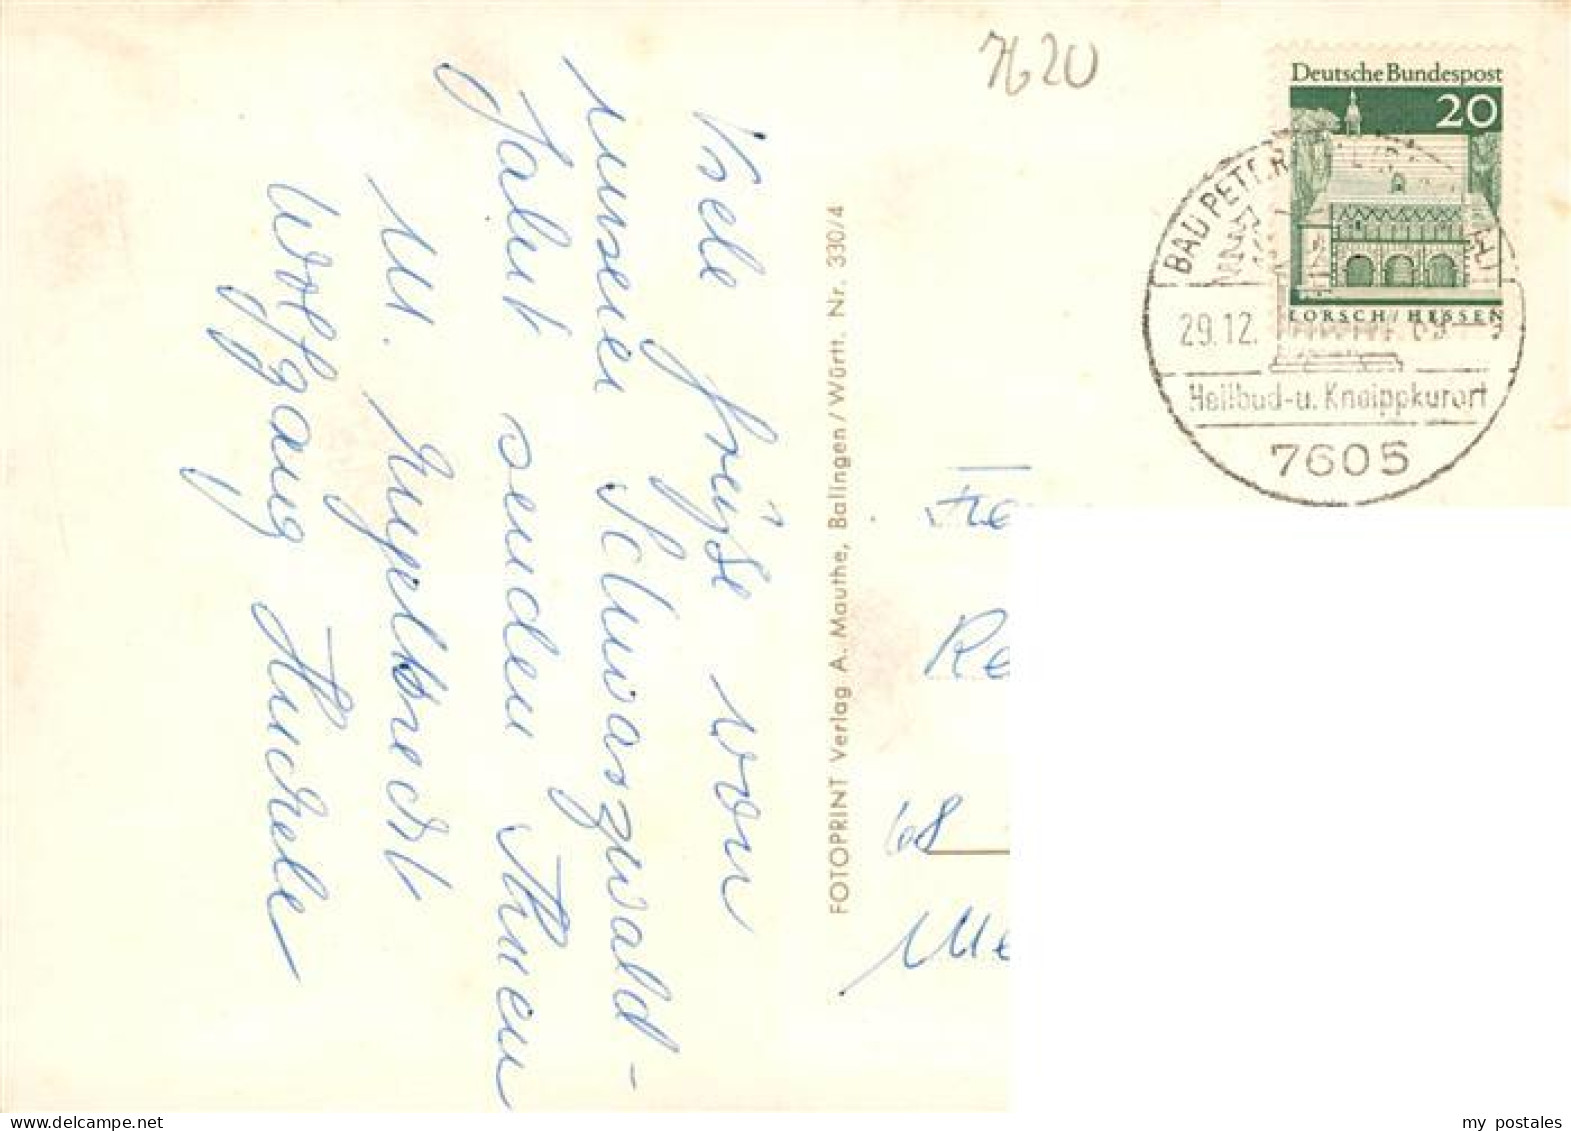 7620
Deutsche Bundespost
20
LORSCH/HESSEN
BAD PETER
29.12. 69
Heilbad-u. Kneippkurort
7605
Viele Grüße von
unserer Schwarzwald-
fahrt senden Ihnen
M. Engelbrecht
Wolfgang
FOTOPRINT Verlag A. Mauthe, Balingen/Württ. Nr. 330/4
68
my postales